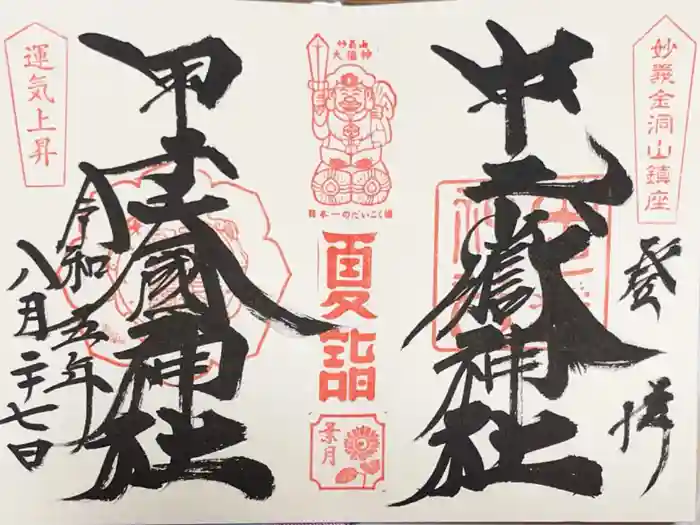 妙義金洞山鎮座
登拝
中之嶽神社
日本一のだいこく様
夏詣
葉月
甲子大國神社
令和五年
八月二十七日
運気上昇